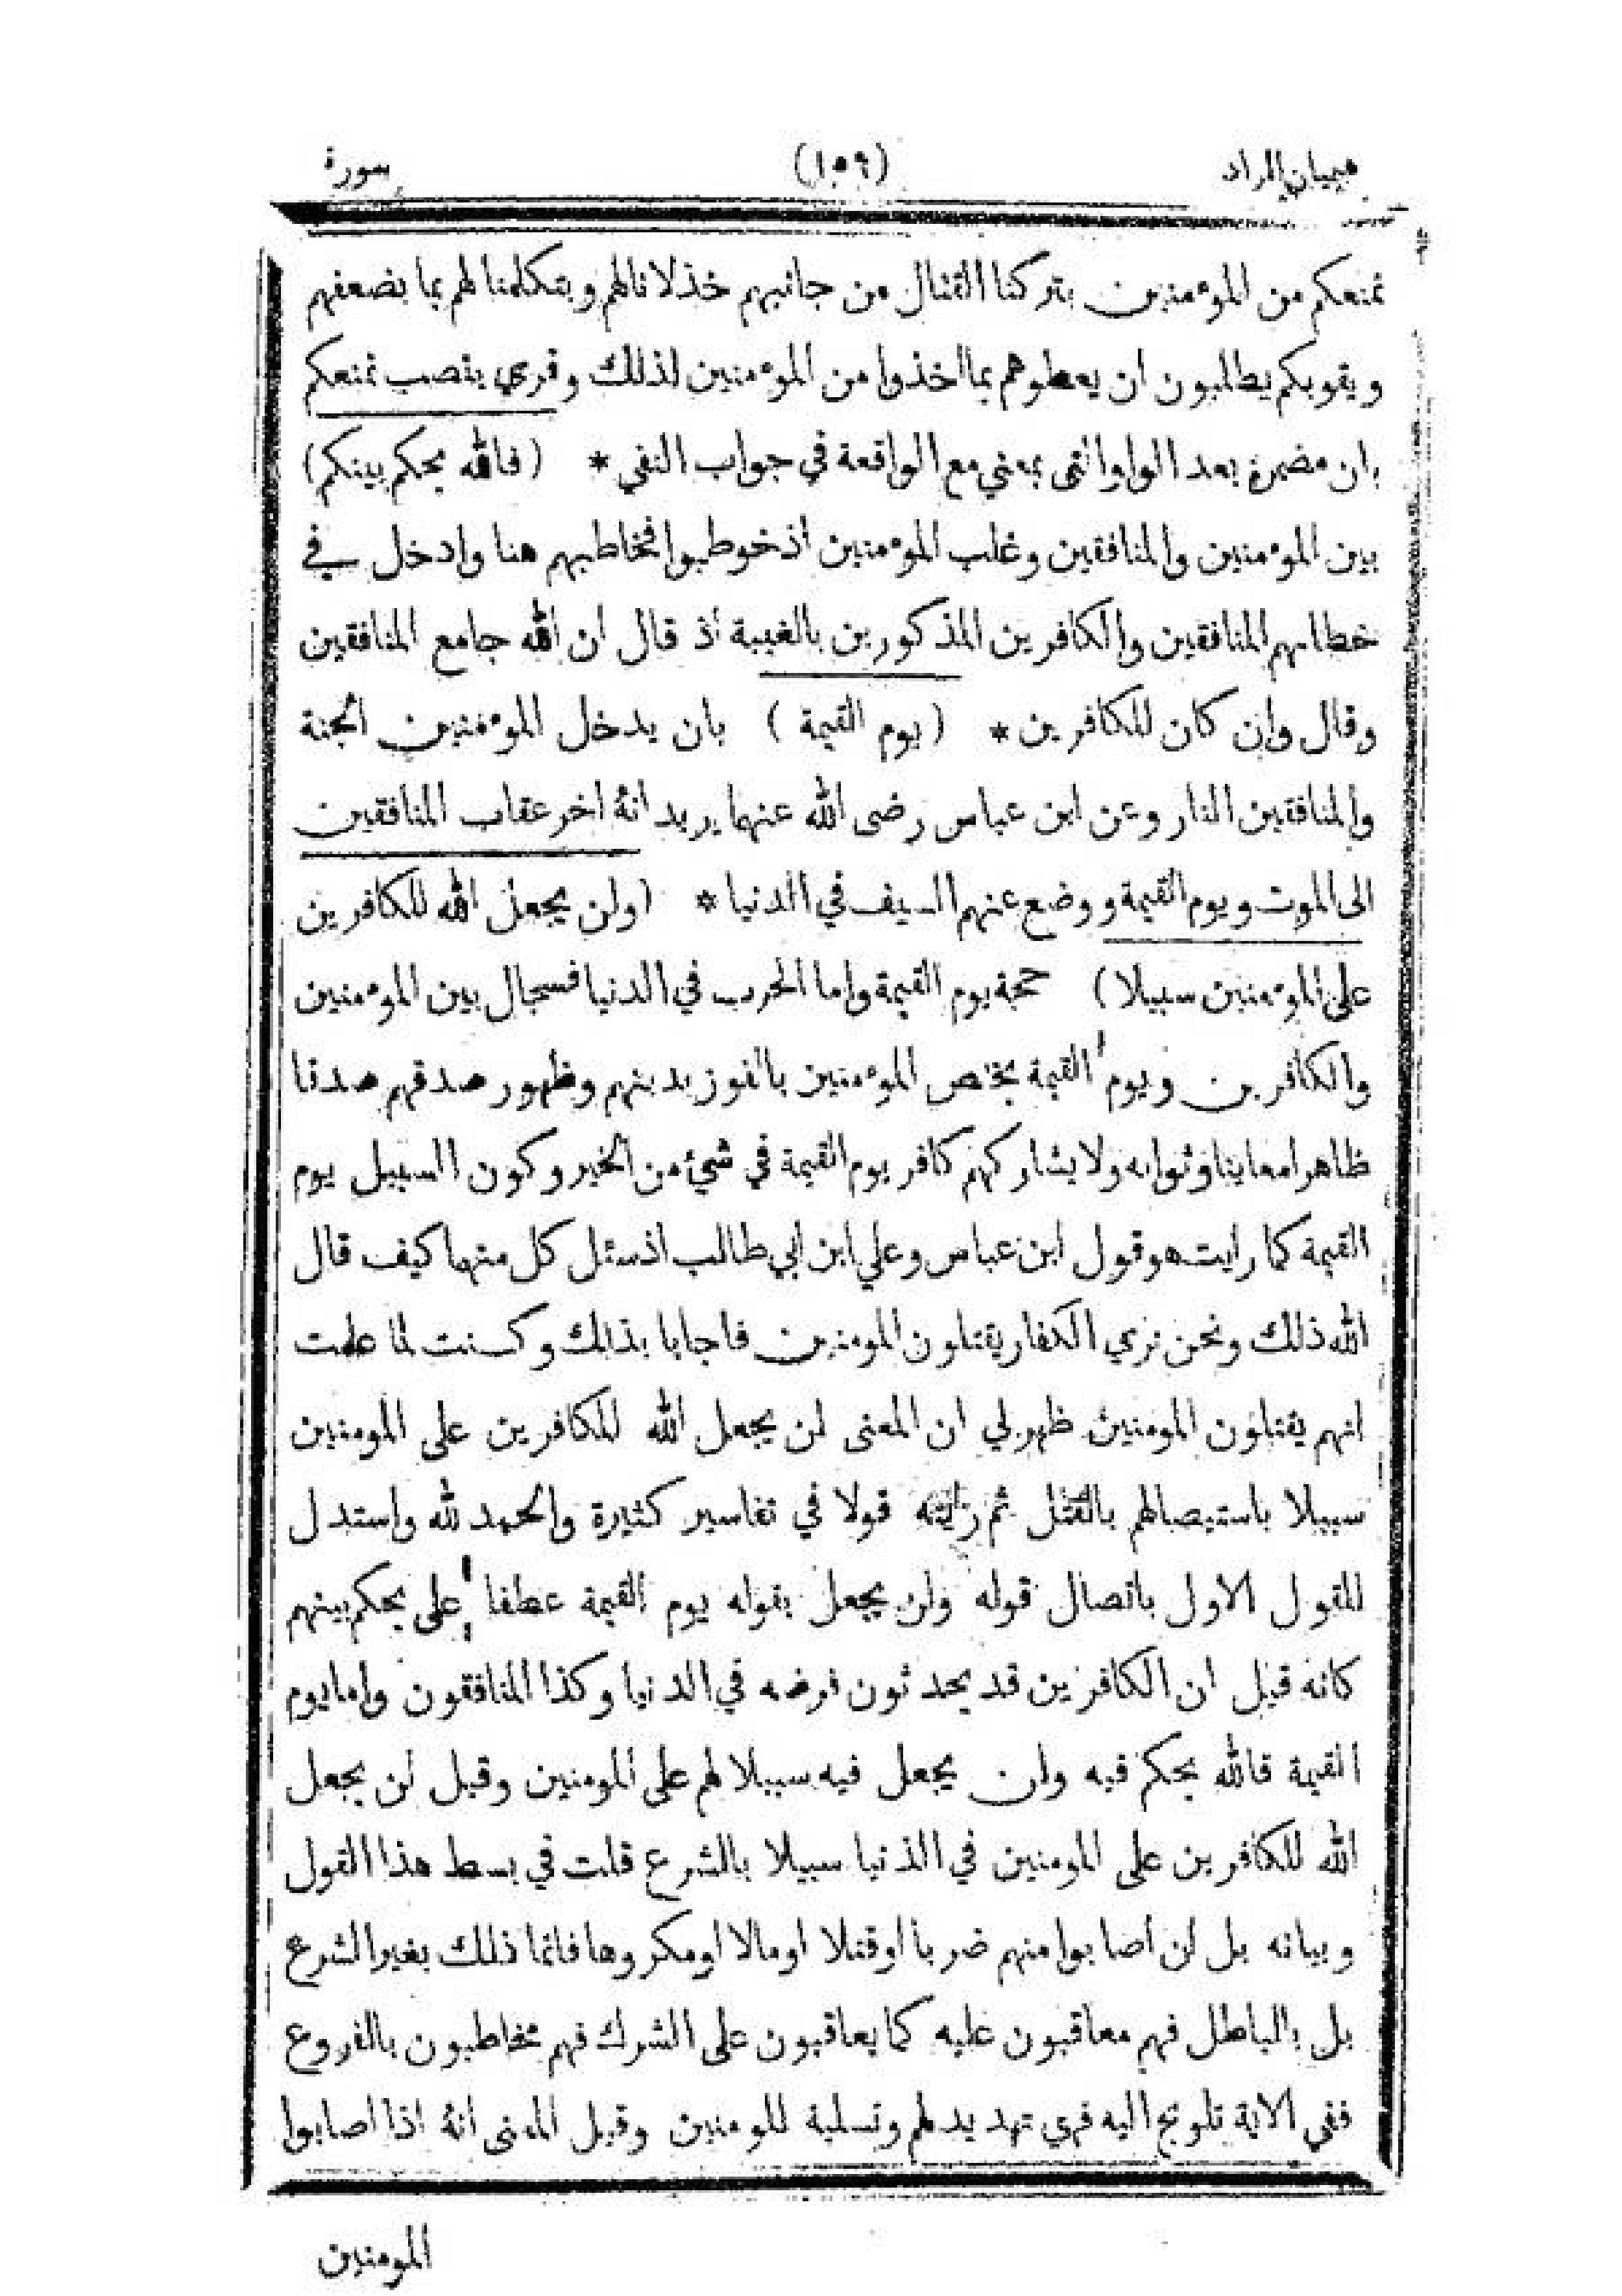 هميان المراد (١٥٦) سورة
نمنعكم من المؤمنين بتركنا القتال من جانبهم خذلانا لهم وبتكلمنا لهم بما يضعفهم
ويقويكم يطلبون ان يعطوهم بما اخذوا من المؤمنين لذلك وقرى بنصب نمنعكم
بان مضمرة بعد الواو التى بمعني مع الواقعة في جواب النفي * (فالله يحكم بينكم)
بين المؤمنين والمنافقين وغلب المؤمنين اذ خوطبوا فخاطبهم هنا وادخل في
خطابهم المنافقين والكافرين المذكورين بالغيبة اذ قال ان الله جامع المنافقين
وقال وان كان للكافرين * (يوم القيمة) بان يدخل المؤمنين الجنة
والمنافقين النار وعن ابن عباس رضى الله عنهما يريد انه اخر عقاب المنافقين
الى الموت ويوم القيمة ووضع عنهم السيف في الدنيا * (ولن يجعل الله للكافرين
على المؤمنين سبيلا) حجة يوم القيمة واما الحرب في الدنيا فسجال بين المؤمنين
والكافرين ويوم القيمة يختص المؤمنين بالفوز بدينهم وظهور صدقهم صدقا
ظاهرا معاينا وثوابه ولا يشاركهم كافر يوم القيمة في شيء من الخير وكون السبيل يوم
القيمة كما رايت هو قول ابن عباس وعلي ابن ابي طالب اذ سئل كل منهما كيف قال
الله ذلك ونحن نرى الكفار يقتلون المومنين فاجابا بذلك وكنت لما علمت
انهم يقتلون المومنين ظهر لي ان المعنى لن يجعل الله للكافرين على المومنين
سبيلا باستيصالهم بالقتل ثم رايته قولا في تفاسير كثيرة والحمد لله واستدل
للقول الاول باتصال قوله ولن يجعل بقوله يوم القيمة عطفا على يحكم بينهم
كانه قيل ان الكافرين قد يحدثون فرضه في الدنيا وكذا المنافقون واما يوم
القيمة فالله يحكم فيه ولن يجعل فيه سبيلا لهم على المومنين وقيل لن يجعل
الله للكافرين على المومنين في الدنيا سبيلا بالشرع قلت في بسط هذا القول
وبيانه بل لن اصابوا منهم ضربا او قتلا او مالا او مكروها فانما ذلك بغير الشرع
بل بالباطل فهم معاقبون عليه كما يعاقبون على الشرك فهم مخاطبون بالفروع
ففي الاية تلويح اليه فهي تهديد لهم وتسلية للمومنين وقيل المعنى انه اذا اصابوا
المومنين